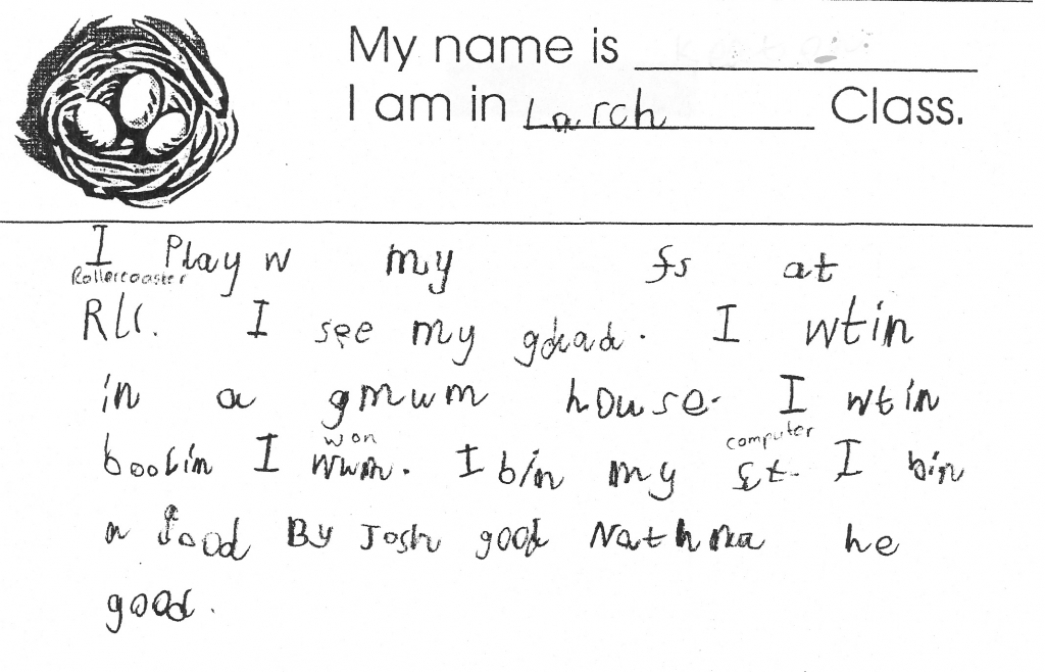 My name is
I am in Larch Class.
I Play w my fs at
Rollercoaster
Rlc. I see my gdad. I wtin
in a gmum house. I wtin
won computer
boobin I wwm. I bin my ct. I bin
a good By Josh good Nathna he
good.